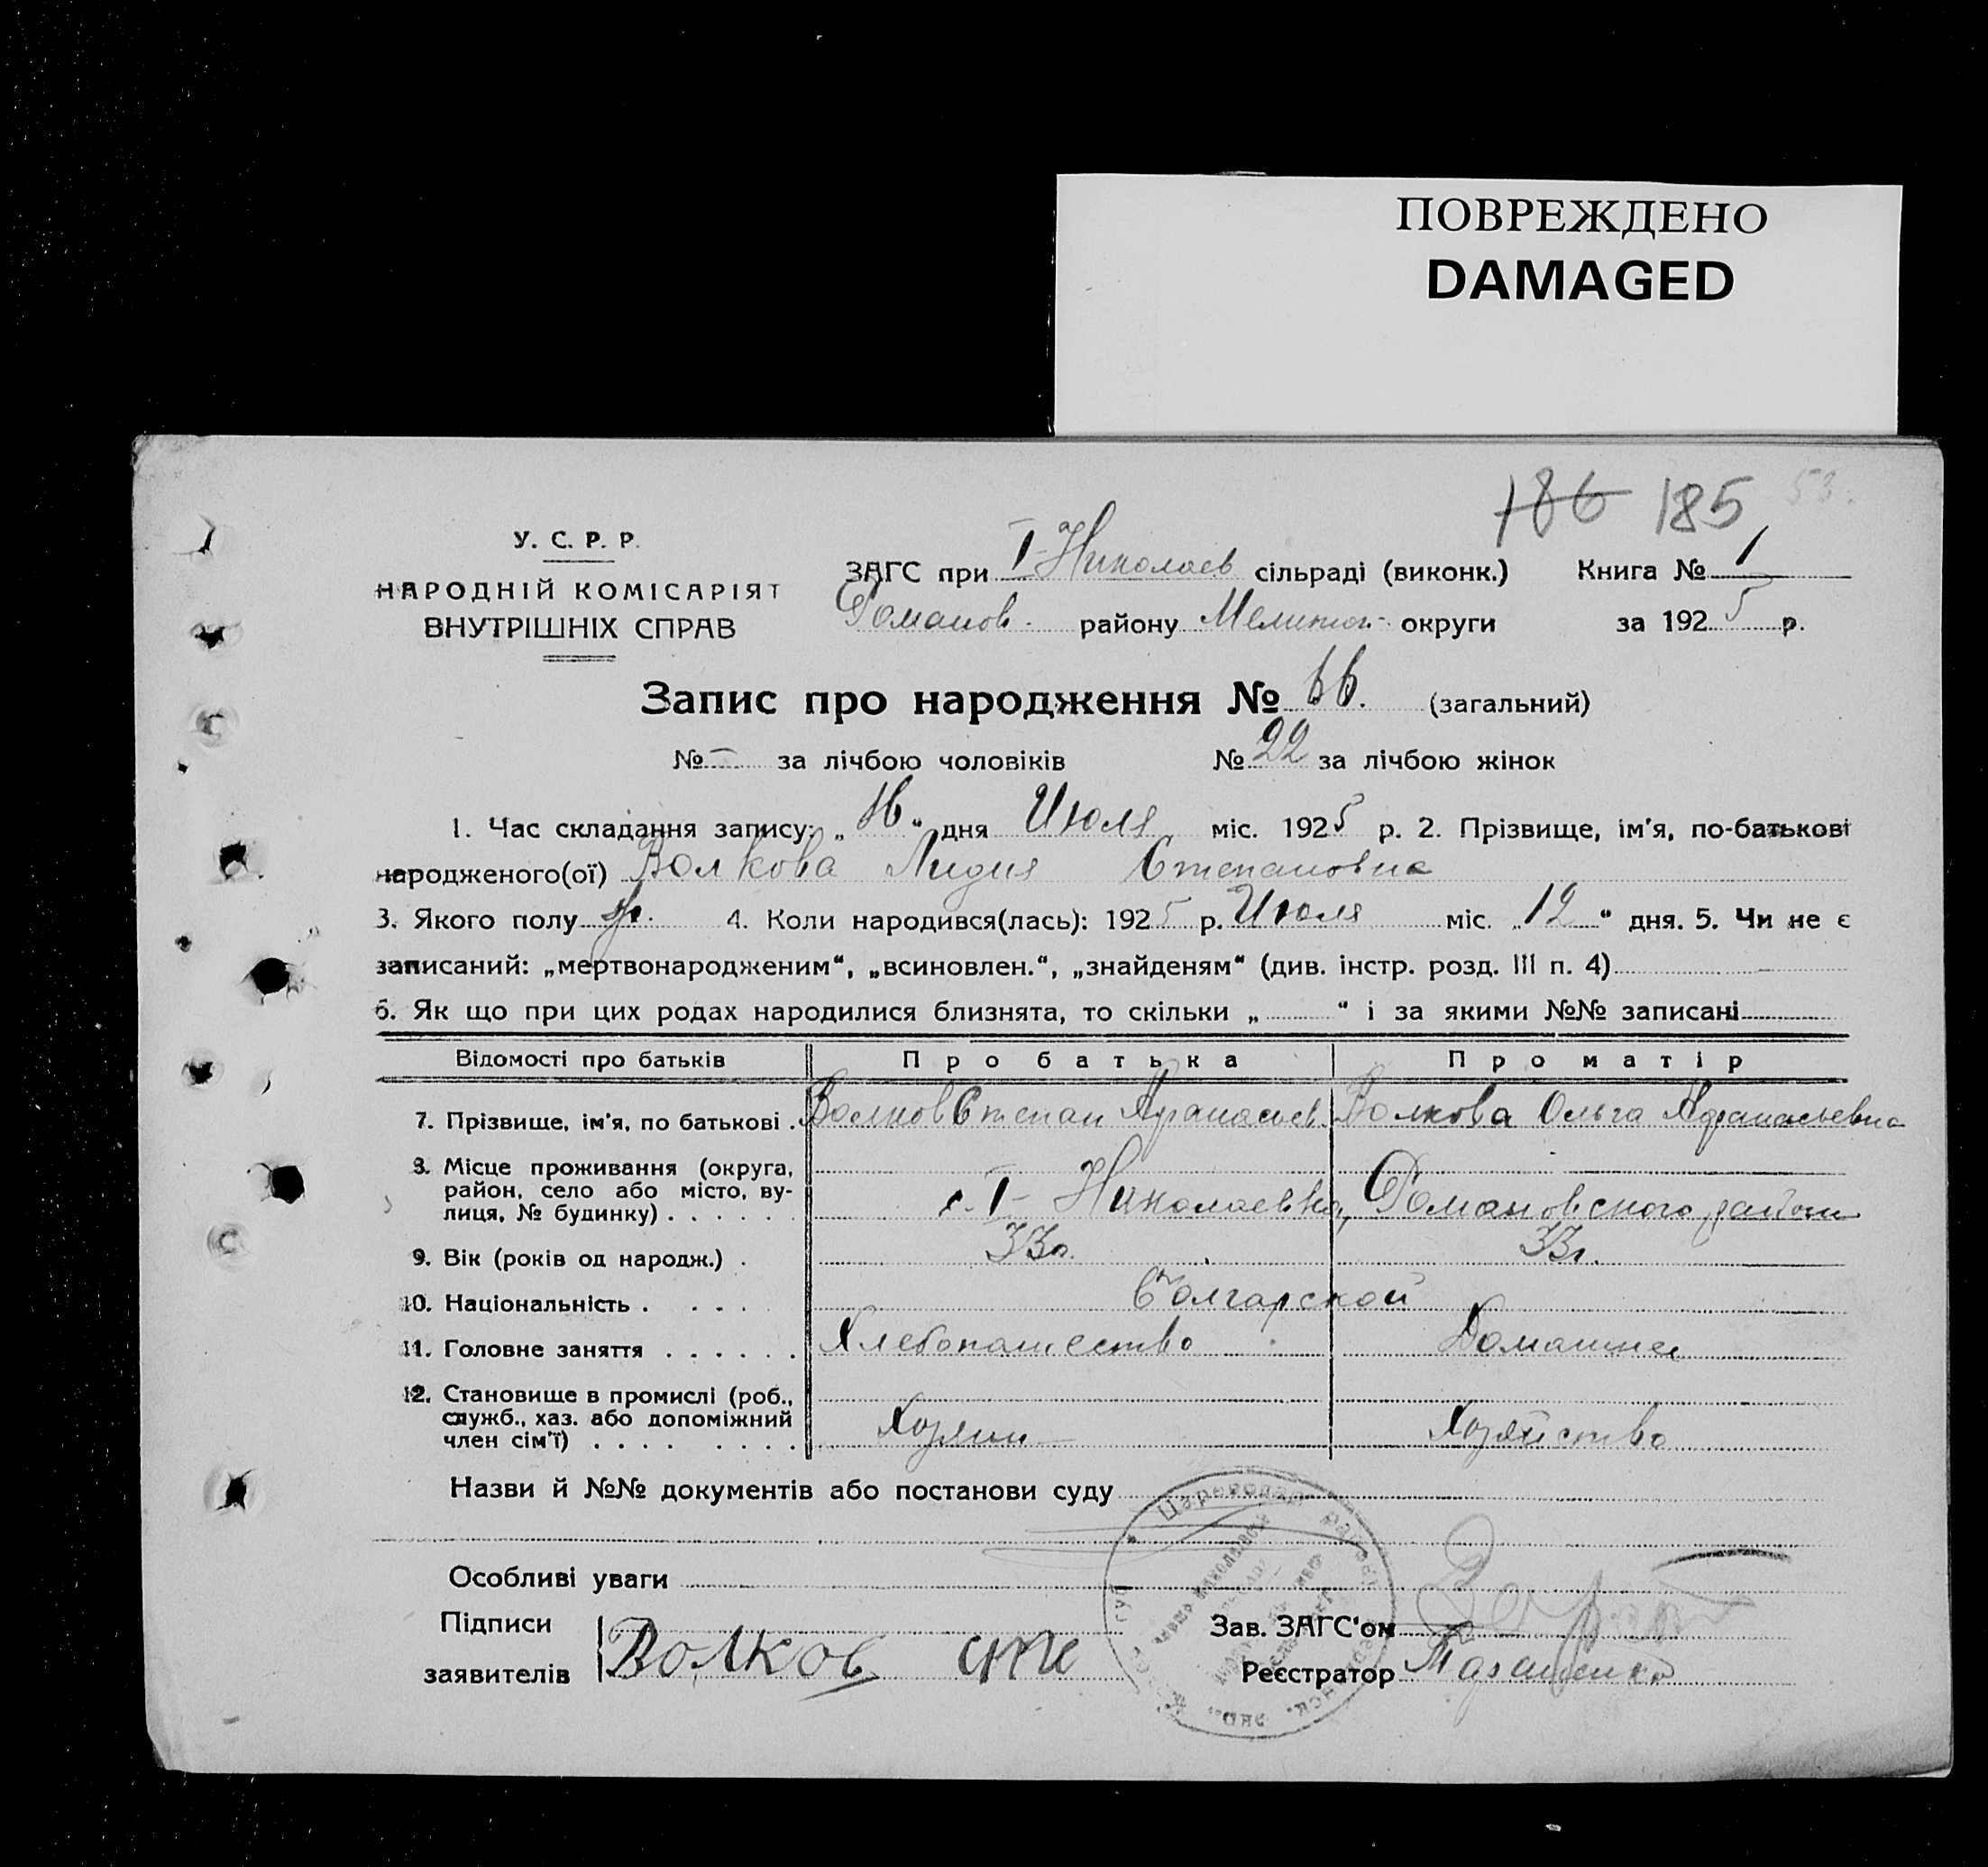 ПОВРЕЖДЕНО
DAMAGED
186 185
У. С. Р. Р.
НАРОДНІЙ КОМІСАРІЯТ
ВНУТРІШНІХ СПРАВ
ЗАГС при I-Николаев сільраді (виконк.) Книга № 1
Романов. району Мелитоп. округи за 1925 р.
Запис про народження № 66. (загальний)
№ — за лічбою чоловіків № 22 за лічбою жінок
1. Час складання запису: „16“ дня Июля міс. 1925 р. 2. Прізвище, ім'я, по-батькові
народженого(ої) Волкова Лидия Степановна
3. Якого полу ж. 4. Коли народився(лась): 1925 р. Июля міс. „12“ дня. 5. Чи не є
записаний: „мертвонародженим“, „всиновлен.“, „знайденям“ (див. інстр. розд. III п. 4)
6. Як що при цих родах народилися близнята, то скільки „ “ і за якими №№ записані
Відомості про батьків Про батька Про матір
7. Прізвище, ім'я, по батькові . Волков Степан Афанасьев. Волкова Ольга Афанасьевна
8. Місце проживання (округа,
район, село або місто, ву-
лиця, № будинку) . . . . . . с. I-Николаевка, Романовского района
9. Вік (років од народж.) . 33г. 33г.
10. Національність . . . . . Болгарской
11. Головне заняття . . . . . . Хлебопашество Домашнее
12. Становище в промислі (роб.,
служб., хаз. або допоміжний
член сім'ї) . . . . . . . . Хозяин Хозяйство
Назви й №№ документів або постанови суду
Особливі уваги
Підписи
заявителів Волков сте
Зав. ЗАГС'ом
Реєстратор